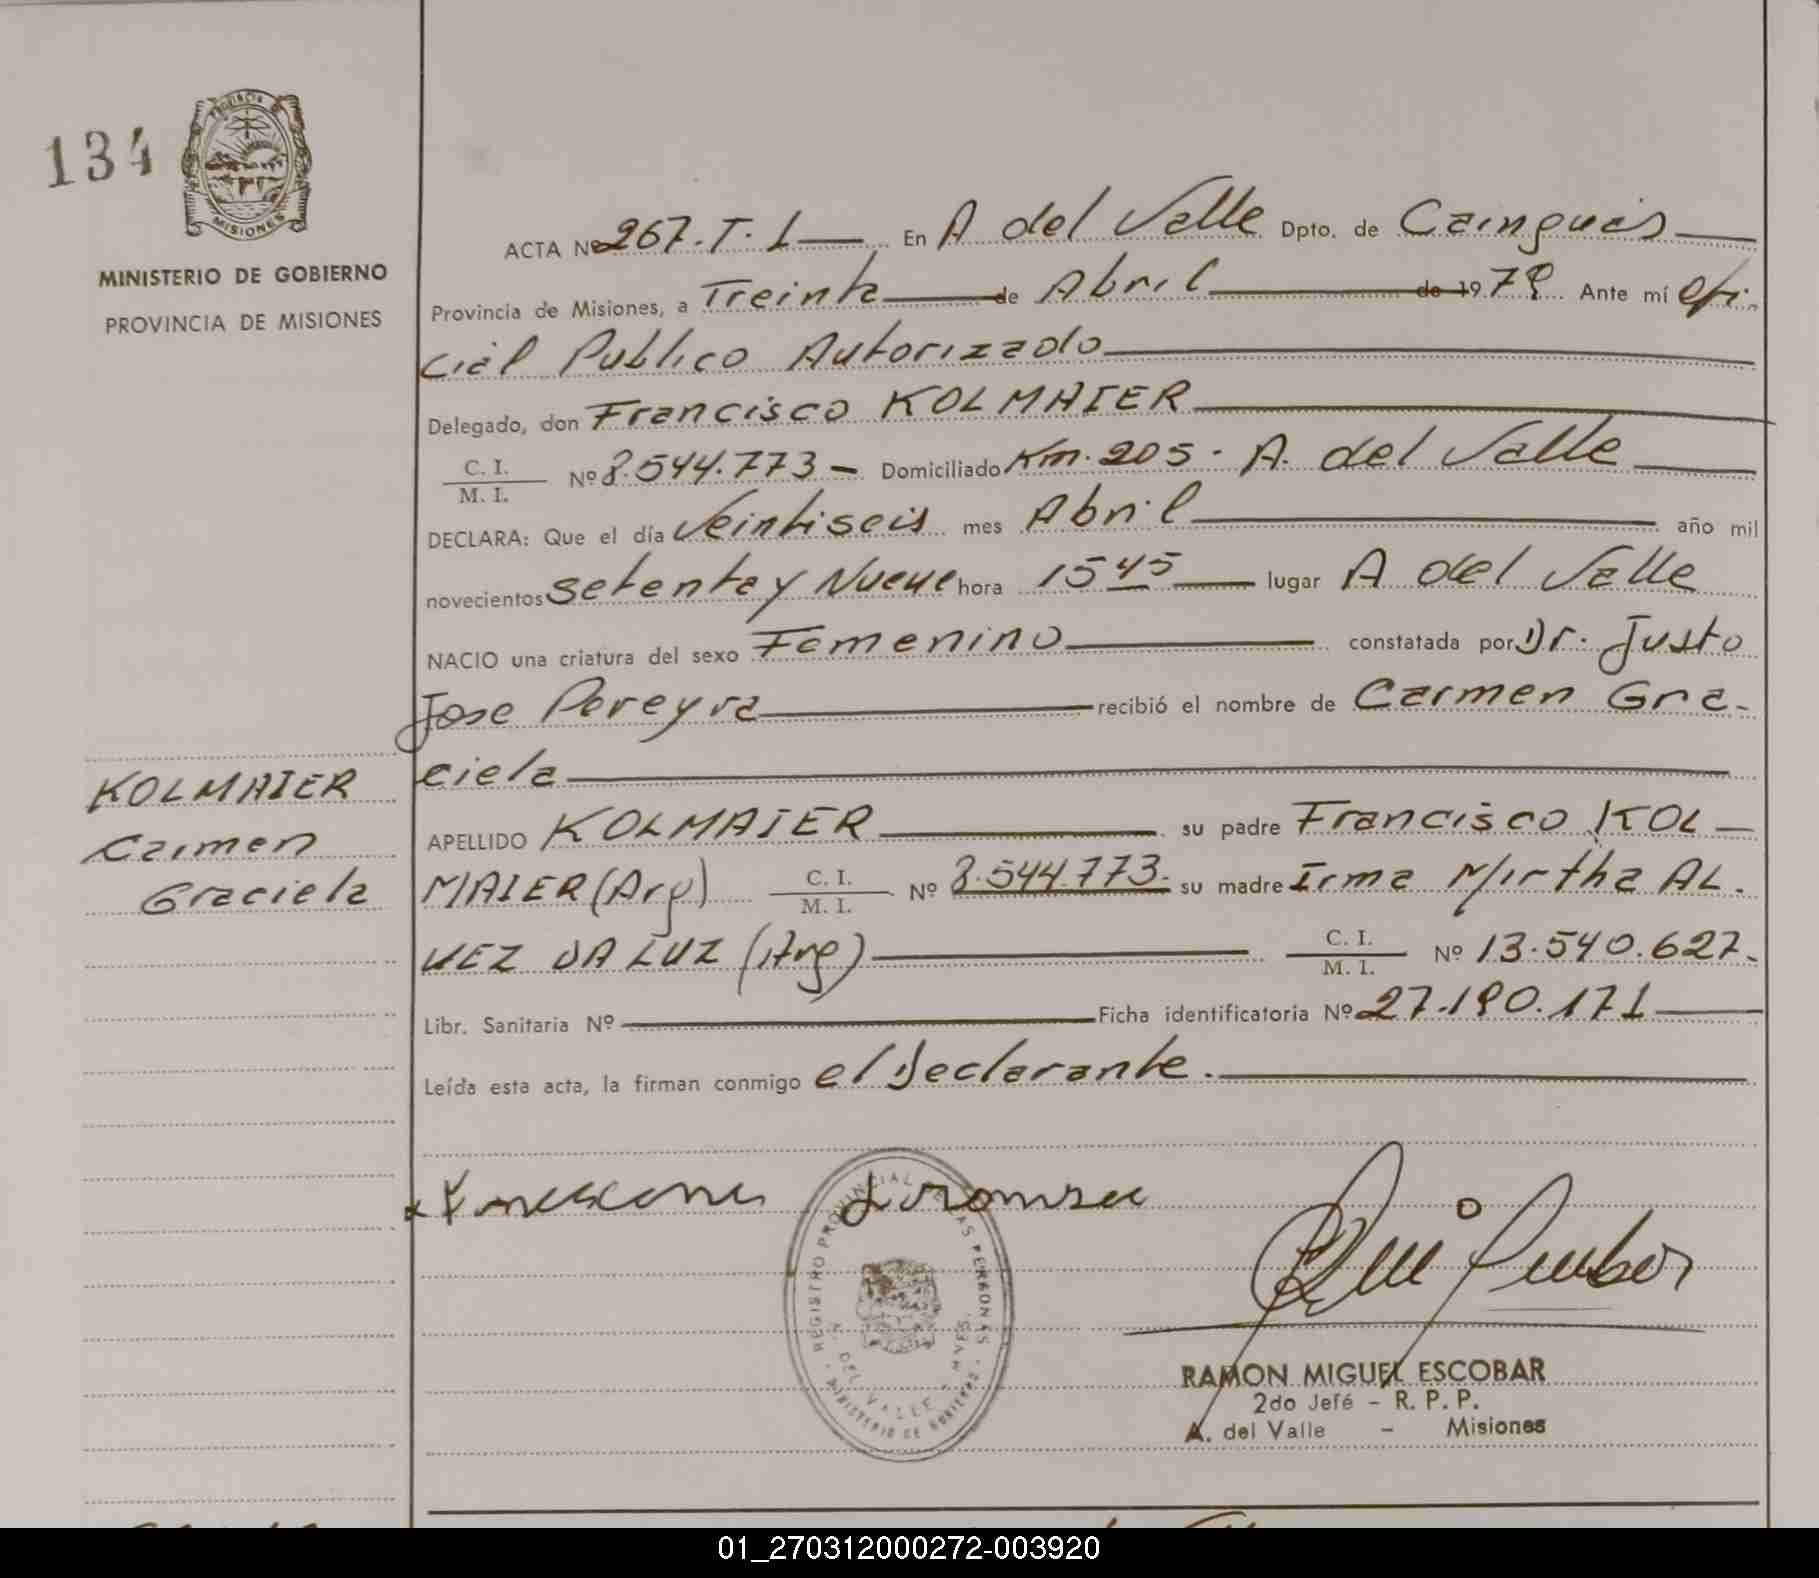 134
PROVINCIA
MISIONES
MINISTERIO DE GOBIERNO
PROVINCIA DE MISIONES
ACTA Nº 267.T.1 En A del Valle Dpto. de Cainguás
Provincia de Misiones, a Treinta de Abril de 1979 Ante mí Ofi-
cial Publico Autorizado
Delegado, don Francisco KOLMAIER
C. I.
M. I. Nº 8.544.773 - Domiciliado Km. 205 - A. del Valle
DECLARA: Que el día Veintiseis mes Abril año mil
novecientos setenta y Nueve hora 15 45 lugar A del Valle
NACIO una criatura del sexo Femenino constatada por Dr. Justo
Jose Pereyra recibió el nombre de Carmen Gra-
ciela
KOLMAIER
Carmen
Graciela
APELLIDO KOLMAIER su padre Francisco KOL-
MAIER (Arg) C. I. M. I. Nº 8.544.773. su madre Irma Mirtha AL-
VEZ DA LUZ (Arg) C. I. M. I. Nº 13.540.627.
Libr. Sanitaria Nº Ficha identificatoria Nº 27.190.171
Leída esta acta, la firman conmigo el Declarante.
REGISTRO PROVINCIAL DE LAS PERSONAS
A. DEL VALLE
MINISTERIO DE GOBIERNO
RAMON MIGUEL ESCOBAR
2do Jefé - R. P. P.
A. del Valle - Misiones
01_270312000272-003920